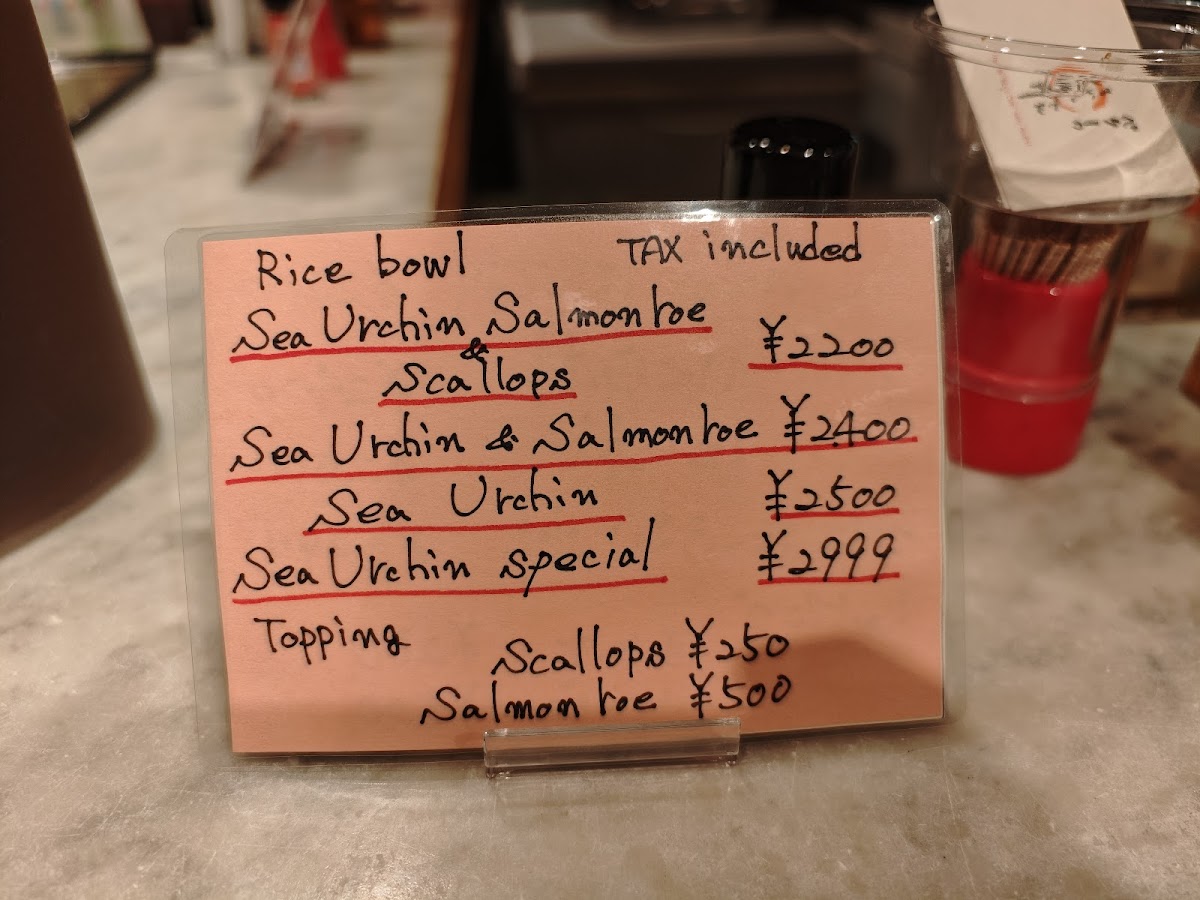 Rice bowl TAX included
Sea Urchin Salmon roe
&
Scallops ¥2200
Sea Urchin & Salmon roe ¥2400
Sea Urchin ¥2500
Sea Urchin special ¥2999
Topping
Scallops ¥250
Salmon roe ¥500